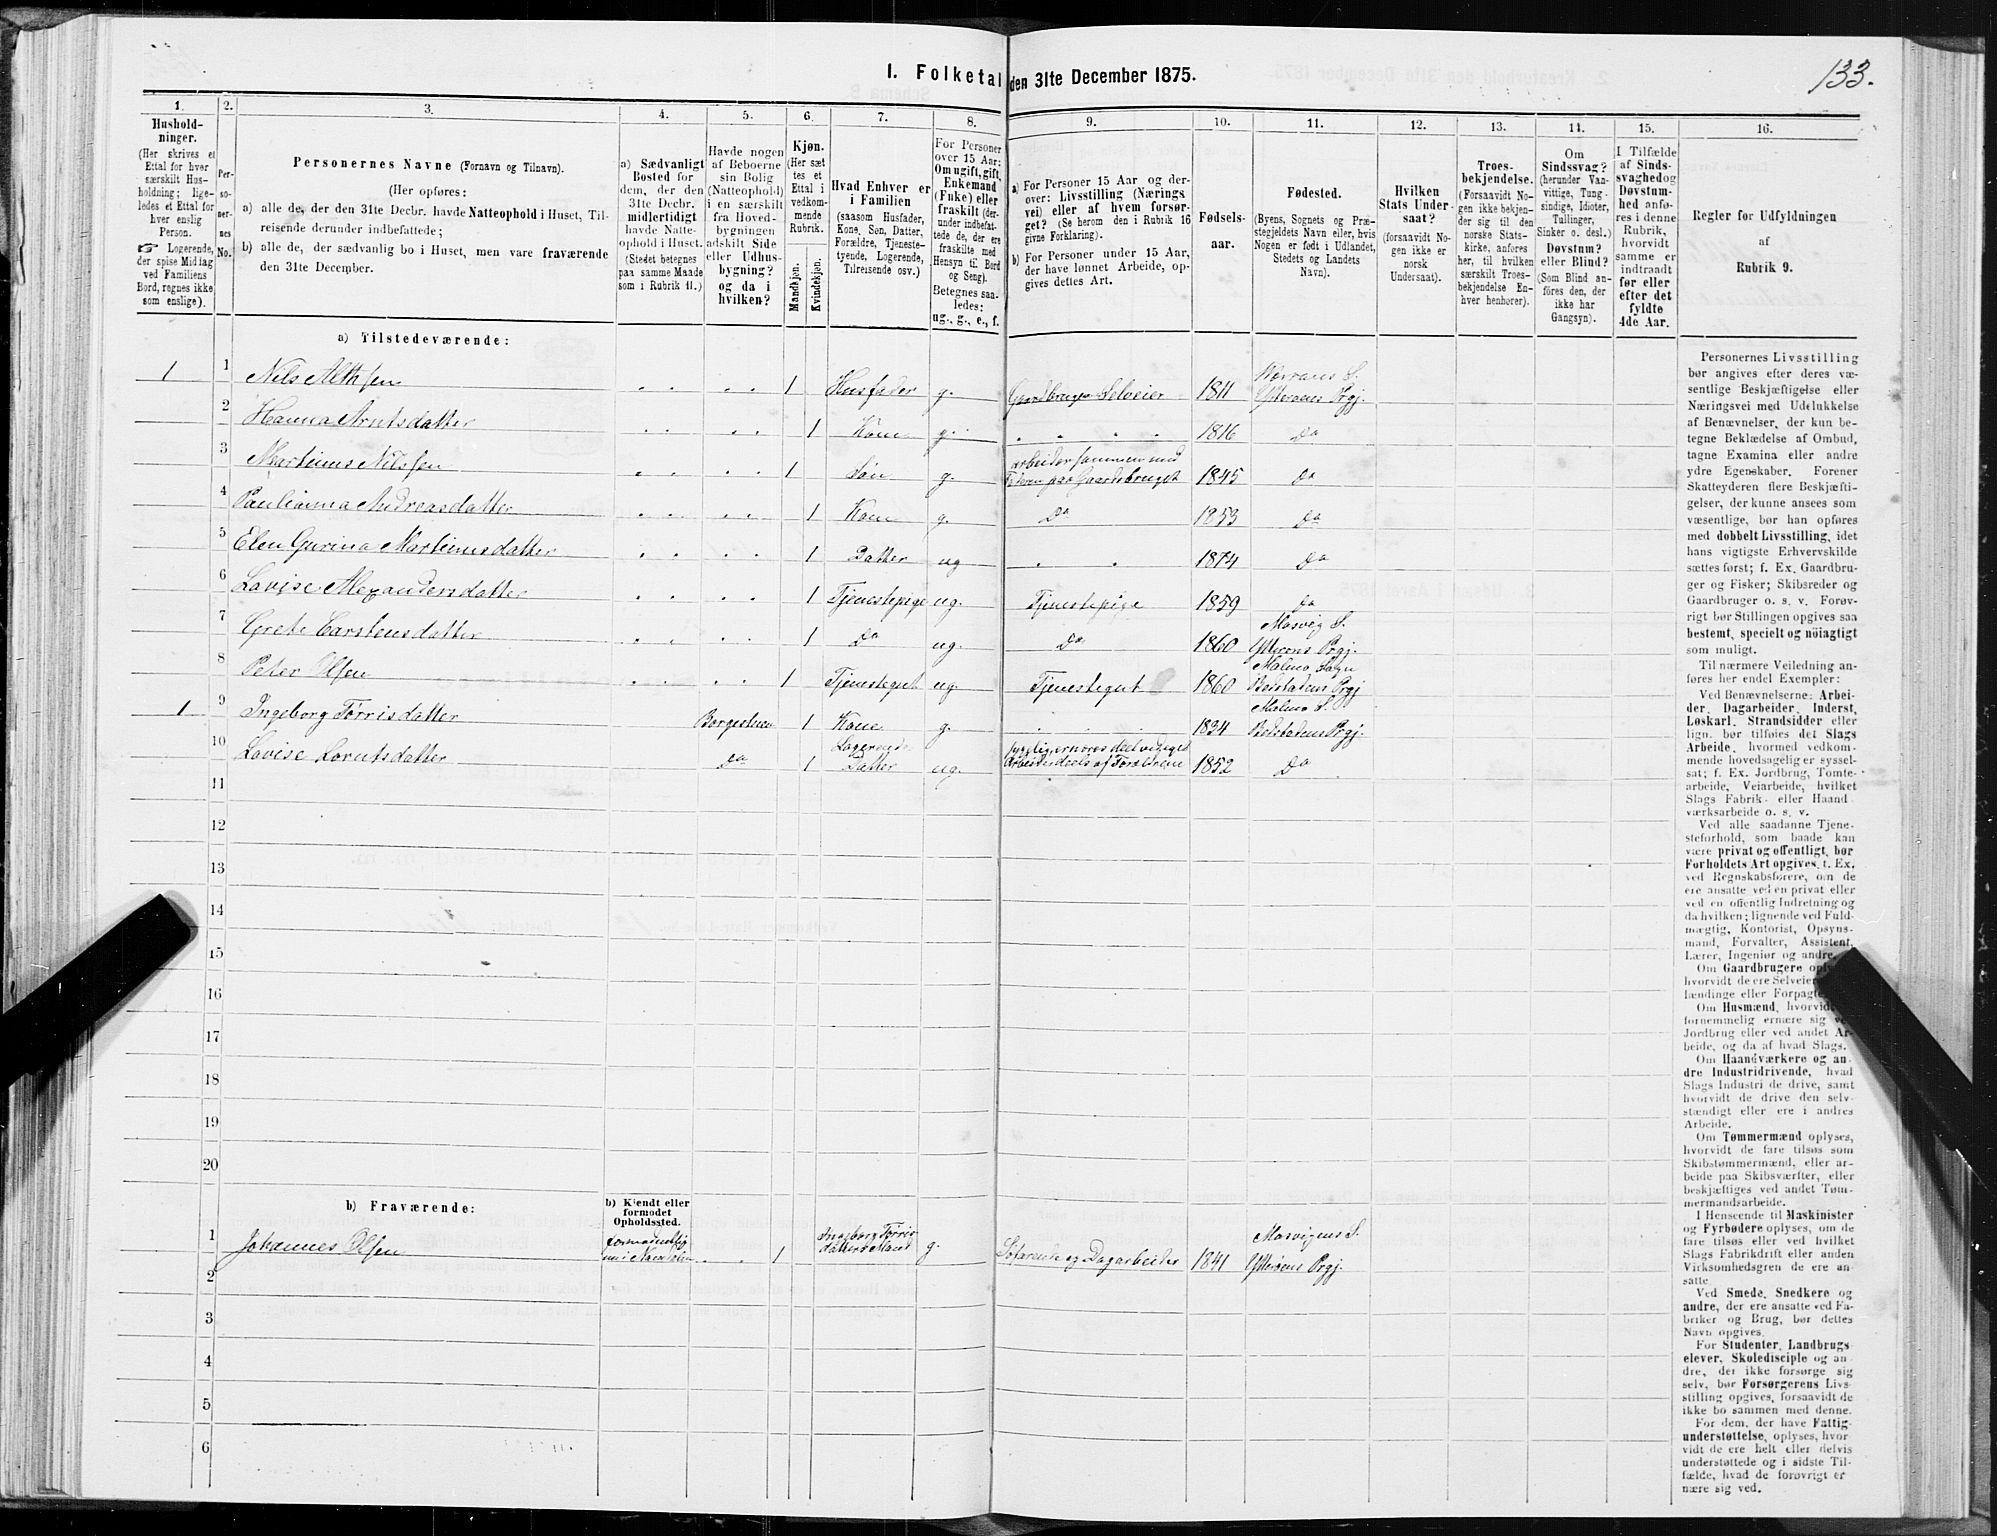 133.
1. Folketal den 31te December 1875.
1.
2.
3.
4.
5.
6.
7.
8.
9.
10.
11.
12.
13.
14.
15.
16.
Hushold-
ninger.
(Her skrives et
Ettal for hver
særskilt Hus-
holdning; lige-
ledes et Ettal for
hver enslig
Person.
☞ Logerende,
der spise Middag
ved Familiens
Bord, regnes ikke
som enslige).
Per-
so-
ner-
nes
No.
Personernes Navne (Fornavn og Tilnavn).
(Her opføres:
a) alle de, der den 31te Decbr. havde Natteophold i Huset, Til-
reisende derunder indbefattede;
b) alle de, der sædvanlig bo i Huset, men vare fraværende
den 31te December.
a) Sædvanligt
Bosted for
dem, der den
31te Decbr.
midlertidigt
havde Natte-
ophold i Huset.
(Stedet betegnes
paa samme Maade
som i Rubrik 11.)
Havde nogen
af Beboerne
sin Bolig
(Natteophold)
i en særskilt
fra Hoved-
bygningen
adskilt Side
eller Udhus-
bygning?
og da i
hvilken?
Kjøn.
(Her sæt
tes et
Ettal i
vedkom-
mende
Rubrik.
Mandkjøn.
Kvindekjøn.
Hvad Enhver er
i Familien
(saasom Husfader,
Kone, Søn, Datter,
Forældre, Tjeneste-
tyende, Logerende,
Tilreisende osv.)
For Personer
over 15 Aar:
Om ugift, gift,
Enkemand
(Enke) eller
fraskilt (der-
under indbefat-
tede de, der ere
fraskilte med
Hensyn til Bord
og Seng).
Betegnes saa-
ledes:
ug., g., e., f.
a) For Personer 15 Aar og der-
over: Livsstilling (Nærings
vei) eller af hvem forsør-
get? (Se herom den i Rubrik 16
givne Forklaring).
b) For Personer under 15 Aar,
der have lønnet Arbeide, op-
gives dettes Art.
Fødsels-
aar.
Fødested.
(Byens, Sognets og Præ-
stegjeldets Navn eller, hvis
Nogen er født i Udlandet,
Stedets og Landets
Navn).
Hvilken
Stats Under-
saat?
(forsaavidt No-
gen ikke er
norsk
Undersaat).
Troes-
bekjendelse.
(Forsaavidt No-
gen ikke bekjen-
der sig til den
norske Stats-
kirke, anføres
her, til hvilken
særskilt Troes-
bekjendelse En-
hver henhører).
Om
Sindssvag?
(herunder Van-
vittige, Tung-
sindige, Idioter,
Tullinger,
Sinker o. desl.)
Døvstum?
eller Blind?
(Som Blind an-
føres den, der
ikke har
Gangsyn).
I Tilfælde
af Sinds-
svaghed og
Døvstum-
hed anfø-
res i denne
Rubrik,
hvorvidt
samme er
indtraadt
før eller
efter det
fyldte
4de Aar.
Regler for Udfyldningen
af
Rubrik 9.
a) Tilstedeværende:
1 1 Nils Althsen " " " " 1 Husfader g. Gaardbruger Selveier 1811 Værrans S. Ytterøens Prgj.
2 Hanna Arntsdatter " " " " 1 Kone g. " " " " 1816 Do
3 Martinus Nilssen " " " " 1 Søn g. arbeider sammen med Faderen paa Gaardsbruget 1845 Do
4 Paulianna Andreasdatter " " " " 1 Kone g. Do 1853 Do
5 Elen Gurina Martinusdatter " " " " 1 Datter ug " " 1874 Do
6 Lovise Alexandersdatter " " " " 1 Tjenestepige ug. Tjenestepige 1859 Do
7 Grete Carstensdatter " " " " 1 Do ug. Do 1860 Mosvig S. Ytterøns Prgj.
8 Peter Olsen " " " " 1 Tjenestegut ug. Tjenestegut 1860 Malmo Sogn Bedstadens Prgj
1 9 Ingeborg Tørrisdatter Borgestuen 1 Kone g. 1834 Malmo S. Bedstadens Prgj.
10 Lovise Lorntsdatter Do 1 Logerende Datter ug. sygelig, ernæres deels ved eget Arbeide deels af Forældrene 1852 Do
11
12
13
14
15
16
17
18
19
20
b) Fraværende:
b) Kjendt eller
formodet
Opholdssted.
1 Johannes Olsen formodentlig nu i Namdalen " " 1 Ingeborg Tørrisdatters Mand g. Søfarende og Dagarbeider 1841 Mosvigens S. Ytterøens Prgj.
2
3
4
5
6
Personernes Livsstilling
bør angives efter deres væ-
sentlige Beskjæftigelse eller
Næringsvei med Udelukkelse
af Benævnelser, der kun be-
tegne Beklædelse af Ombud,
tagne Examina eller andre
ydre Egenskaber. Forener
Skatteyderen flere Beskjæfti-
gelser, der kunne ansees som
væsentlige, bør han opføres
med dobbelt Livsstilling, idet
hans vigtigste Erhvervskilde
sættes først; f. Ex. Gaardbru-
ger og Fisker; Skibsreder og
Gaardbruger o. s. v. Forøv-
rigt bør Stillingen opgives saa
bestemt, specielt og nöiagtigt
som muligt.
Til nærmere Veiledning an-
føres her endel Exempler:
Ved Benævnelserne: Arbei-
der, Dagarbeider, Inderst,
Løskarl, Strandsidder eller
lign. bør tilføies det Slags
Arbeide, hvormed vedkom-
mende hovedsagelig er syssel-
sat; f. Ex. Jordbrug, Tomte-
arbeide, Veiarbeide, hvilket
Slags Fabrik- eller Haand-
værksarbeide o. s. v.
Ved alle saadanne Tjene-
steforhold, som baade kan
være privat og offentligt, bør
Forholdets Art opgives, t. Ex.
ved Regnskabsførere, om de
ere ansatte ved en privat eller
ved en offentlig Indretning og
da hvilken; lignende ved Fuld-
mægtig, Kontorist, Opsyns-
mand, Forvalter, Assistent,
Lærer, Ingeniør og andre.
Om Gaardbrugere
hvorvidt de ere Selveiere,
lændinge eller
Om Husmænd,
fornemmelig ernære sig
Jordbrug eller ved andet Ar-
beide, og da af hvad Slags.
Om Haandværkere og an-
dre Industridrivende, hvad
Slags Industri de drive, samt
hvorvidt de drive den selv-
stændigt eller ere i andres
Arbeide.
Om Tømmermænd oplyses,
hvorvidt de fare tilsøs som
Skibstømmermænd, eller ar-
beide paa Skibsværfter, eller
beskjæftiges ved andet Tøm-
mermandsarbeide.
I Henseende til Maskinister
og Fyrbødere oplyses, om de
fare tilsøs eller ved hvilket
Slags Fabrikdrift eller anden
Virksomhedsgren de ere an-
satte
Ved Smede, Snedkere og
andre, der ere ansatte ved Fa-
briker og Brug, bør dettes
Navn opgives.
For Studenter, Landbrugs-
elever, Skoledisciple og an-
dre, der ikke forsørge sig
selv, bør Forsørgerens Livs-
stilling opgives, forsaavidt de
ikke bo sammen med denne.
For dem, der have Fattig-
understøttelse, oplyses, hvor-
vidt de ere helt eller delvis
understøttede og i sidste Til-
fælde, hvad de forøvrigt er-
nære sig ved.